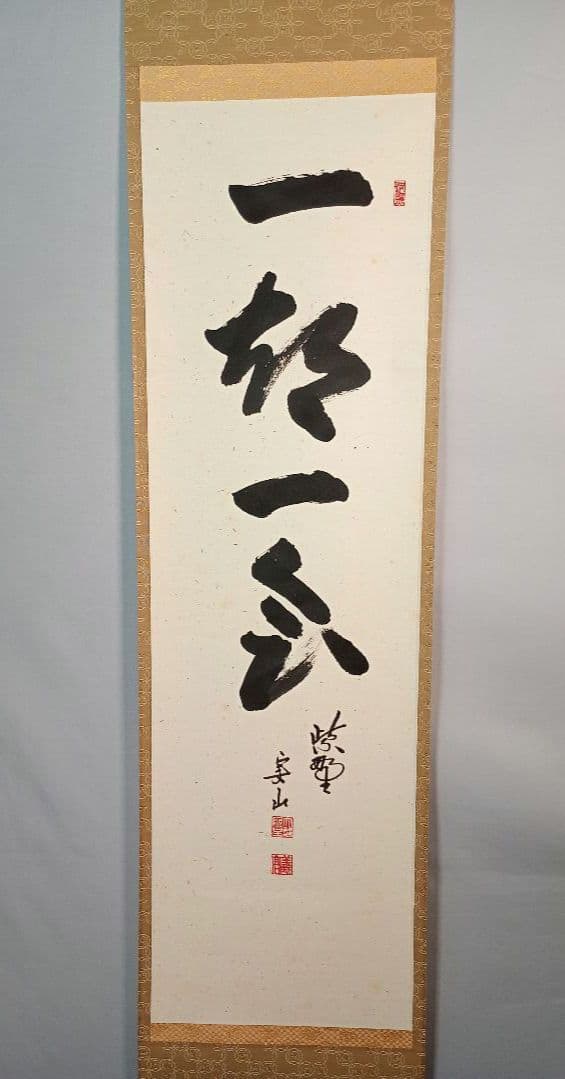 一期一会
紫野
山